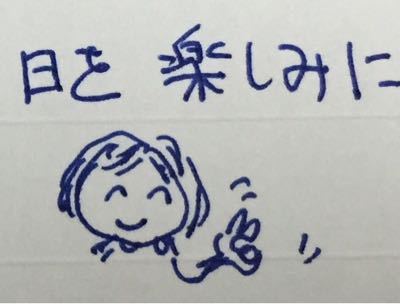 日を楽しみに